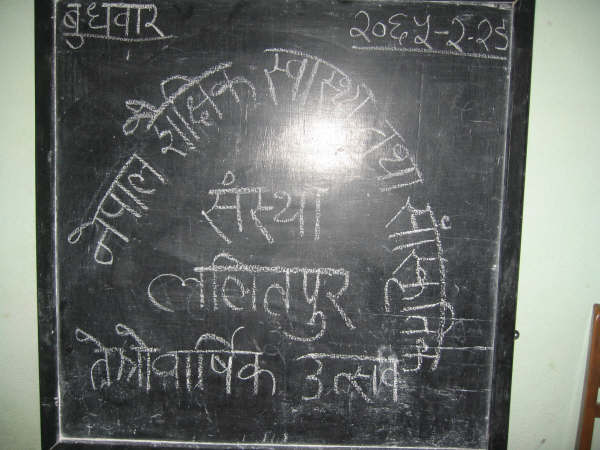 बुधवार
२०६५-२-२९
नेपाल शैक्षिक स्वास्थ्य तथा सांस्कृतिक
संस्था
ललितपुर
तेश्रोवार्षिक उत्सव